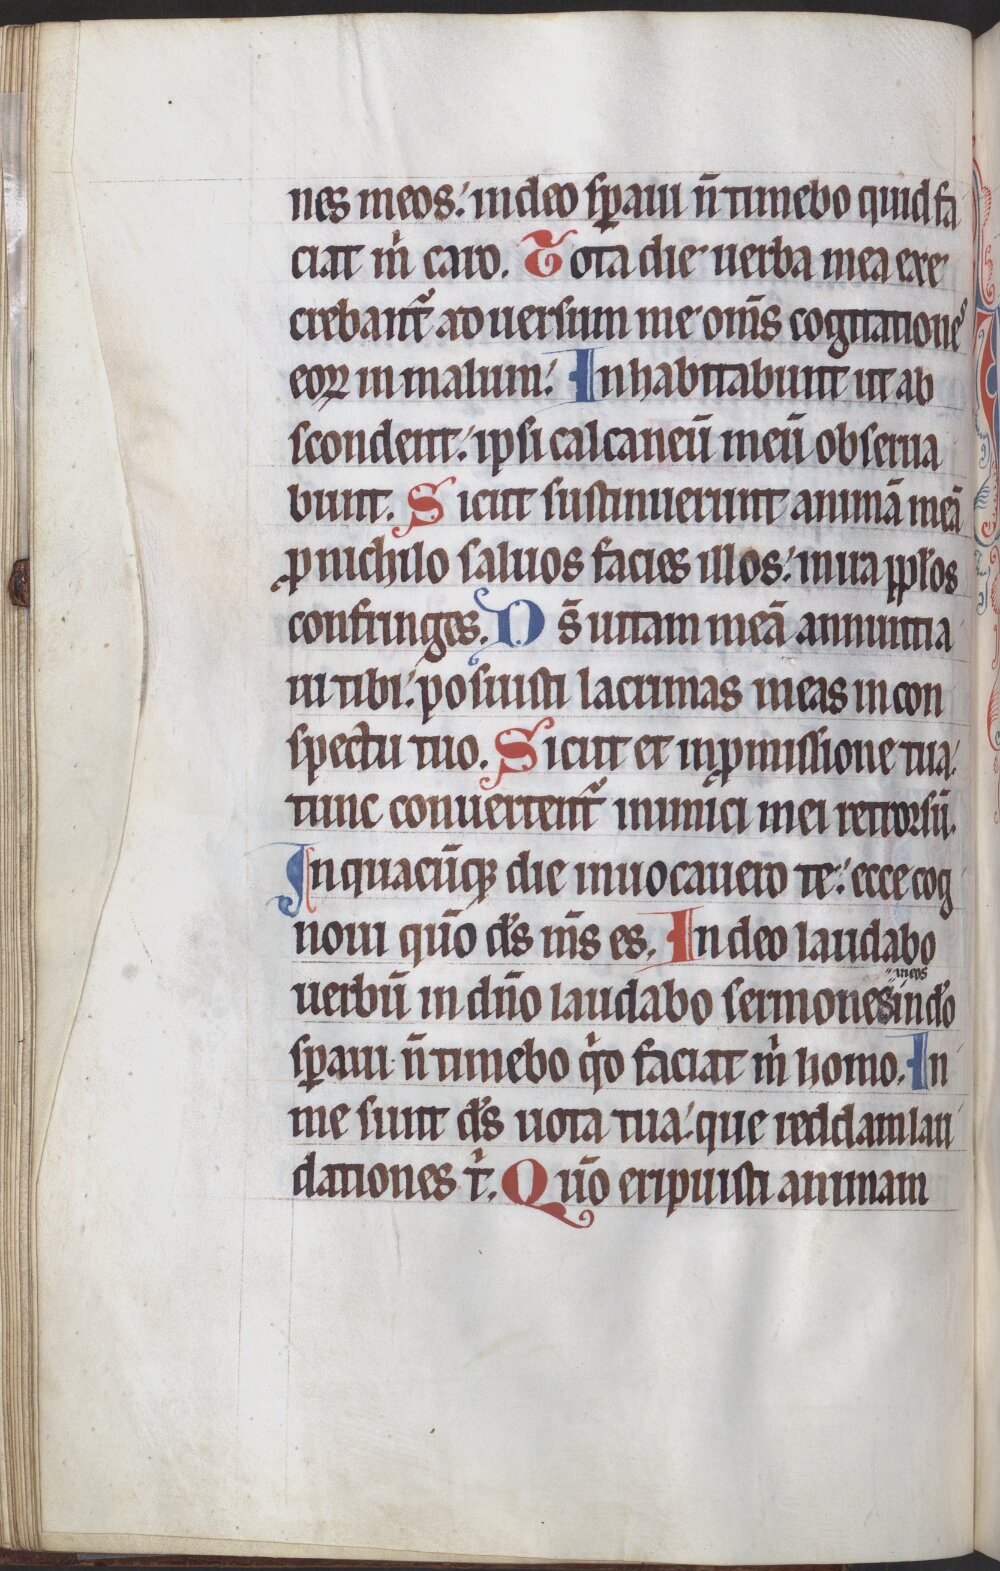 nes meos: in deo sꝑaui n̄ timebo quid fa
ciat m̍ caro. Tota die uerba mea exe
crebant᷑ aduersum me om̄s cogitationes
eoꝝ in malum: Inhabitabunt ut ab
scondent: ipsi calcaneū meū obserua
bunt. Sicut sustinuerunt animā meā
ꝓ nichilo saluos facies illos: in ira pp̄los
confringes. Ds̄ uitam meā annuntia
ui tibi: posuisti lacrimas meas in con
spectu tuo. Sicut et in ꝓmissione tua:
tunc conuertent᷑ inimici mei retrorsū.
In quacūqꝫ die inuocauero te: ecce cog
noui qūo ds̄ m̄s es. In deo laudabo
uerbū in dn̄o laudabo sermones meos in dō
sꝑaui n̄ timebo qͥd faciat m̍ homo. In
me sunt ds̄ uota tua: que reddam lau
dationes t̍. Qūo eripuisti animam